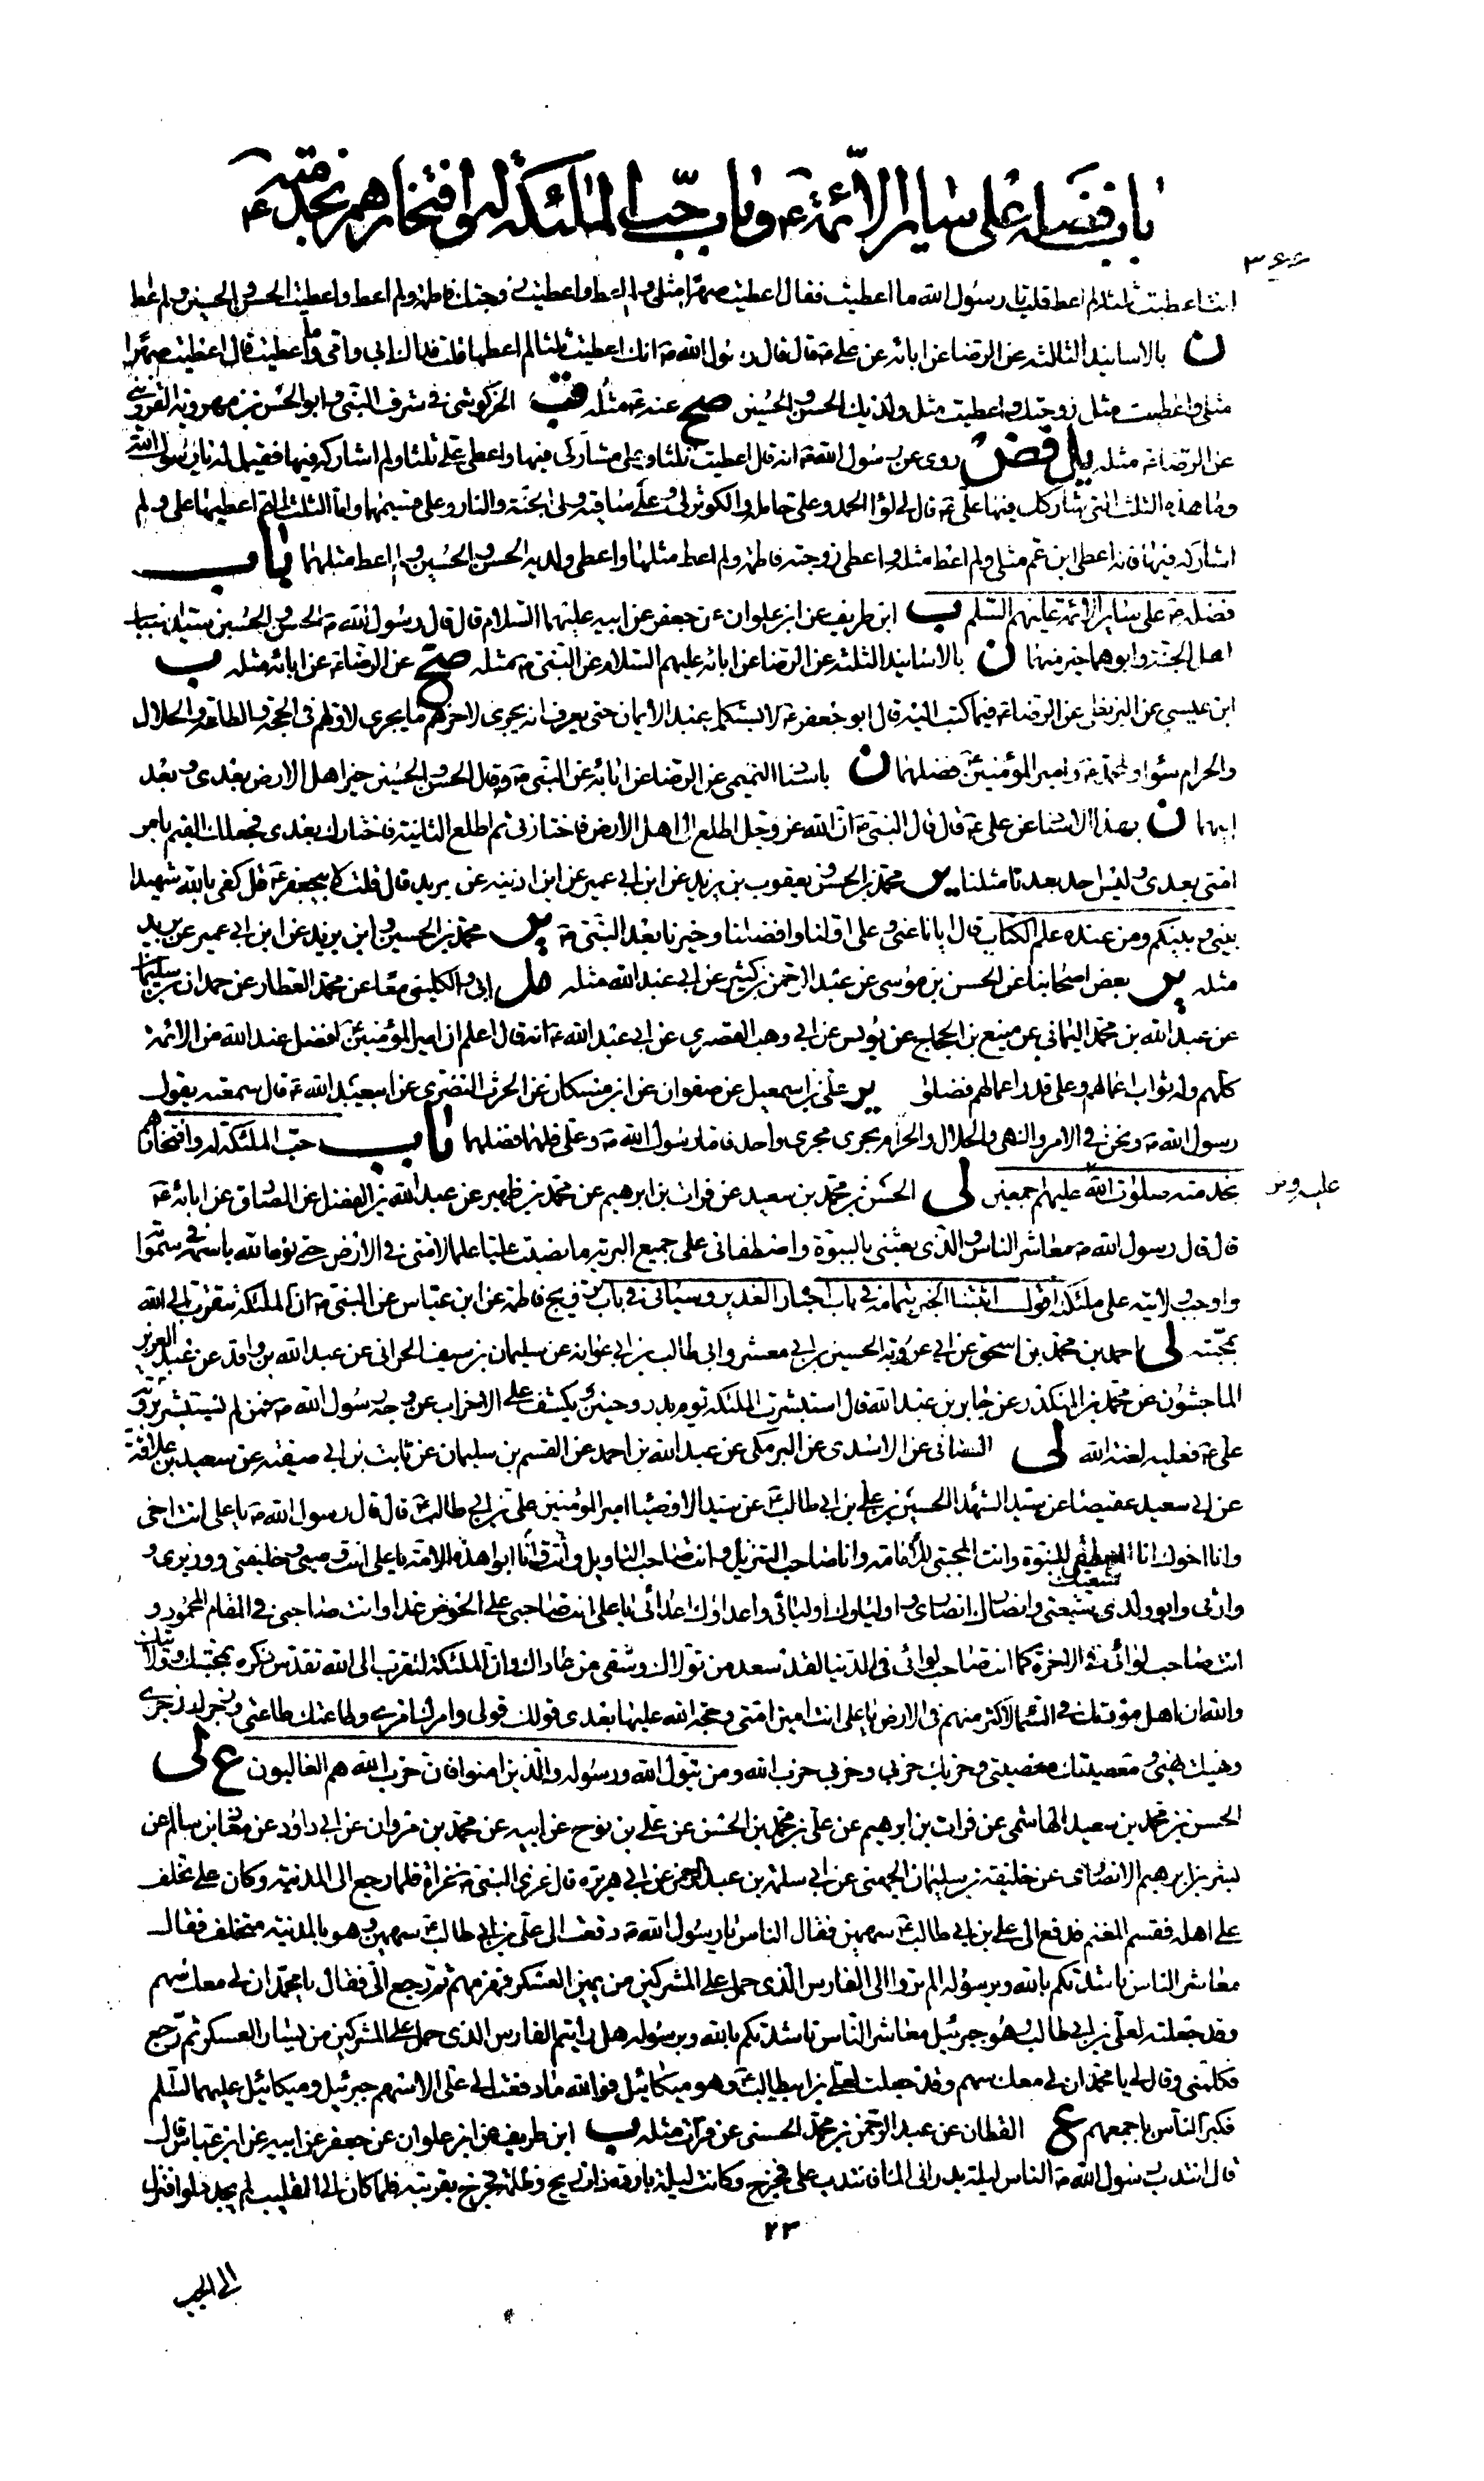 باب فضله على ساير الائمة ع وباب حب الملئكة له وافتخارهم بخدمته ع
٣٤٤
انت اعطيت ثلثا لم اعط قلت يا رسول الله ما اعطيت فقال اعطيت صهرا مثلى ولم اعط واعطيت زوجتك فاطمة ولم اعط واعطيت الحسن والحسين ولم اعط
ن بالاسانيد الثلثة عن الرضا عن ابائه عن على ع قال قال رسول الله ص انك اعطيت ثلثا لم اعطها قلت فداك ابى وامى وما اعطيت قال اعطيت صهرا
مثلى واعطيت مثل زوجتك واعطيت مثل ولديك الحسن والحسين صح عنه ع مثله قب الخركوشى فى شرف النبى وابو الحسن بن مهرويه القزوينى
عن الرضا ع مثله يل فض روى عن رسول الله ص انه قال اعطيت ثلثا وعلى مشاركى فيها واعطى على ثلثا ولم اشاركه فيها فقيل له يا رسول الله
وما هذه الثلث التى شاركك فيها على ع قال لى لواء الحمد وعلى حامله والكوثر لى وعلى ساقيه ولى الجنة والنار وعلى قسيمهما واما الثلث التى اعطيها على ولم
اشاركه فيها فانه اعطى ابن عم مثلى ولم اعط مثله واعطى زوجته فاطمة ولم اعط مثلها واعطى ولديه الحسن والحسين ولم اعط مثلهما باب
فضله ع على ساير الائمة عليهم السلم ب ابن طريف عن ابن علوان عن جعفر عن ابيه عليهما السلام قال قال رسول الله ص الحسن والحسين سيدا شباب
اهل الجنة وابوهما خير منهما ن بالاسانيد الثلثة عن الرضا عن ابائه عليهم السلام عن النبى ص مثله صح عن الرضا ع عن ابائه مثله ب
ابن عيسى عن البزنطى عن الرضا ع فيما كتب اليه قال ابو جعفر ع لا يستكمل عبد الايمان حتى يعرف انه يجرى لاخرهم ما يجرى لاولهم فى الحجة والطاعة والحلال
والحرام سواء ولمحمد ص وامير المؤمنين ع فضلهما ن باسناد التميمى عن الرضا عن ابائه عن النبى ص وقال الحسن والحسين خير اهل الارض بعدى وبعد
ابيهما ن بهذا الاسناد عن على ع قال قال النبى ص ان الله عز وجل اطلع الى اهل الارض فاختارنى ثم اطلع الثانية فاختارك بعدى فجعلك القيم بامر
امتى بعدى وليس احد بعدنا مثلنا ير محمد بن الحسن ويعقوب بن يزيد عن ابن ابى عمير عن ابن اذينه عن بريد قال قلت لابى جعفر ع قل كفى بالله شهيدا
بينى وبينكم ومن عنده علم الكتاب قال ايانا عنى وعلى اولنا وافضلنا وخيرنا بعد النبى ص ير محمد بن الحسين وابن يزيد عن ابن ابى عمير عن بريد
مثله ير بعض اصحابنا عن الحسن بن موسى عن عبد الرحمن بن كثير عن ابى عبد الله مثله مل ابى والكلينى معا عن محمد العطار عن حمدان بن سليمان
عن عبد الله بن محمد اليمانى عن منيع بن الحجاج عن يونس عن ابى وهب القصرى عن ابى عبد الله ع انه قال اعلم ان امير المؤمنين ع افضل عند الله من الائمة
كلهم وله ثواب اعمالهم وعلى قدر اعمالهم فضلوا ير على بن اسمعيل عن صفوان عن ابن مسكان عن الحرث النضرى عن ابى عبد الله ع قال سمعته يقول
رسول الله ص ونحن فى الامر والنهى والحلال والحرام نجرى مجرى واحد فاما رسول الله ص وعلى فلهما فضلهما باب حب الملئكة له وافتخارهم
بخدمته صلوات الله عليهم اجمعين لى الحسن بن محمد بن سعيد عن فرات بن ابرهيم عن محمد بن ظهير عن عبد الله بن الفضل عن الصادق عن ابائه ع
قال قال رسول الله ص معاشر الناس والذى بعثنى بالنبوة واصطفانى على جميع البرية ما نصبت عليا علما لامتى فى الارض حتى نوه الله باسمه فى سمواته
واوجب ولايته على ملئكته اقول اثبتنا الخبر بتمامه فى باب اخبار الغدير وسياتى فى باب تزويج فاطمة عن ابن عباس عن النبى ص ان الملئكة تتقرب الى الله
بمحبته لى احمد بن محمد بن اسحق عن ابى عروبة الحسين بن ابى معشر وابى طالب بن ابى عوانه عن سليمان بن سيف الحرانى عن عبد الله بن واقد عن عبد العزيز
الماجشون عن محمد بن المنكدر عن جابر بن عبد الله قال استبشرت الملئكة يوم بدر وحنين بكشف على الاحزاب عن وجه رسول الله ص فمن لم يستبشر برؤية
على ع فعليه لعنة الله لى السنانى عن الاسدى عن البرمكى عن عبد الله بن احمد عن القسم بن سليمان عن ثابت بن ابى صفيه عن سعيد بن علاقة
عن ابى سعيد عقيصا عن سيد الشهداء الحسين بن على بن ابى طالب ع عن سيد الاوصياء امير المؤمنين على بن ابى طالب ع قال قال رسول الله ص يا على انت اخى
وانا اخوك انا المصطفى للنبوة وانت المجتبى للامامة وانا صاحب التنزيل وانت صاحب التاويل وانا وانت ابوا هذه الامة يا على انت وصيى وخليفتى ووزيرى و
وارثى وابو ولدى شيعتك شيعتى وانصارك انصارى واولياؤك اوليائى واعداؤك اعدائى يا على انت صاحبى على الحوض غدا وانت صاحبى فى المقام المحمود و
انت صاحب لوائى فى الاخرة كما انت صاحب لوائى فى الدنيا لقد سعد من تولاك وشقى من عاداك وان الملئكة لتتقرب الى الله تقدس ذكره بمحبتك وولايتك
والله ان اهل مودتك فى السماء لاكثر منهم فى الارض يا على انت امين امتى وحجة الله عليها بعدى قولك قولى وامرك امرى وطاعتك طاعتى وزجرك زجرى
ونهيك نهيى ومعصيتك معصيتى وحزبك حزبى وحزبى حزب الله ومن يتول الله ورسوله والذين امنوا فان حزب الله هم الغالبون ع لى
الحسن بن محمد بن سعيد الهاشمى عن فرات بن ابرهيم عن على بن محمد بن الحسن عن على بن نوح عن ابيه عن محمد بن مروان عن ابى داود عن معاذ بن سالم عن
بشر بن ابرهيم الانصارى عن خليفة بن سليمان الجهنى عن ابى سلمة بن عبد الرحمن عن ابى هريرة قال غزى النبى ص غزاة فلما رجع الى المدينة وكان على تخلف
على اهله فقسم المغنم فدفع الى على بن ابى طالب ع سهمين فقال الناس يا رسول الله ص دفعت الى على بن ابى طالب ع سهمين وهو بالمدينة متخلف فقال
معاشر الناس ناشدتكم بالله وبرسوله الم تروا الى الفارس الذى حمل على المشركين من يمين العسكر فهزمهم ثم رجع الى فقال يا محمد ان لى معك سهم
وقد جعلته لعلى بن ابى طالب وهو جبرئيل معاشر الناس ناشدتكم بالله وبرسوله هل رايتم الفارس الذى حمل على المشركين من يسار العسكر ثم رجع
فكلمنى وقال لى يا محمد ان لى معك سهم وقد جعلته لعلى بن ابى طالب ع وهو ميكائيل فوالله ما دفعت الى على الا سهم جبرئيل وميكائيل عليهما السلم
فكبر الناس باجمعهم ع القطان عن عبد الرحمن بن محمد الحسنى عن فرات مثله ب ابن طريف عن ابن علوان عن جعفر عن ابيه عن ابن عباس قال
قال انتدب رسول الله ص الناس ليلة بدر الى الماء فانتدب على فخرج وكانت ليلة باردة ذات ريح وظلمة فخرج بقربته فلما كان الى القليب لم يجد دلوا فنزل
٢٣
الى الجب